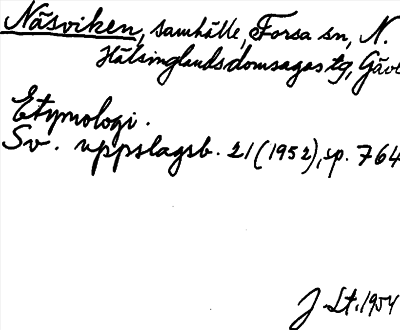 Näsviken, samhälle, Forsa sn, N.
Hälsinglands domsagas tg, Gävl
Etymologi.
Sv. uppslagsb. 21 (1952), sp. 764
J Lt. 1954